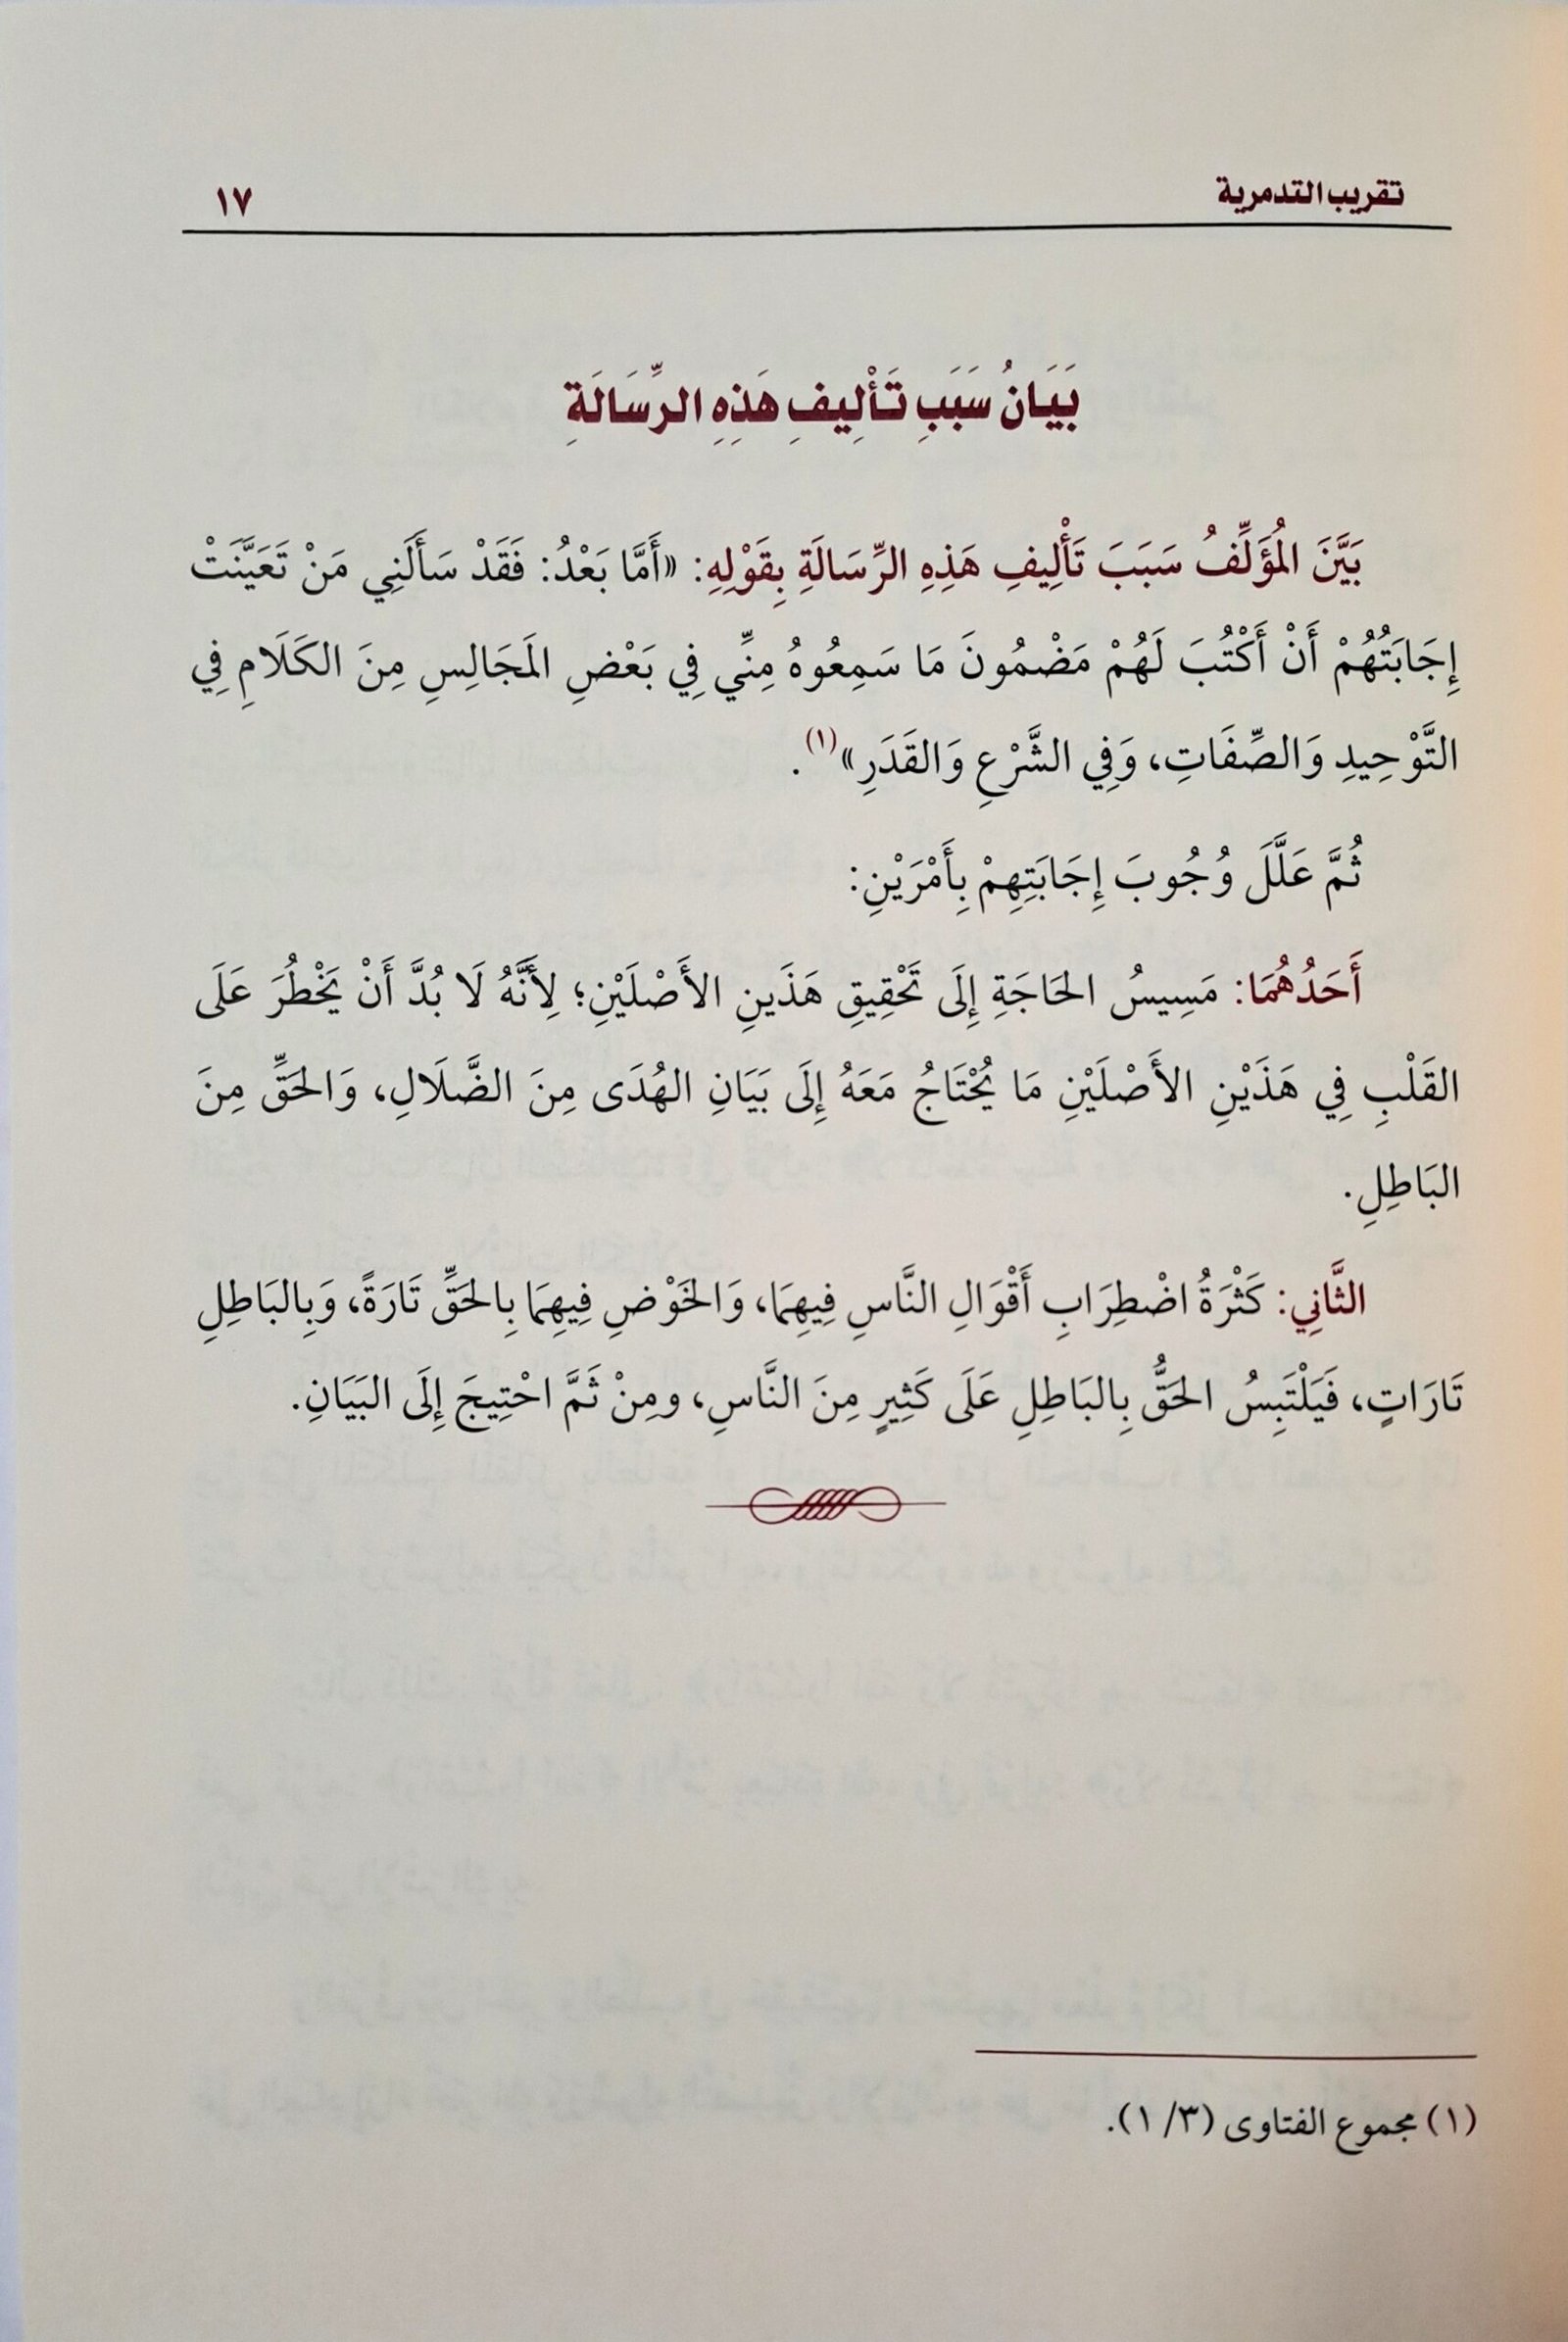 تقريب التدمرية ١٧
بَيَانُ سَبَبِ تَأْلِيفِ هَذِهِ الرِّسَالَةِ
بَيَّنَ المُؤَلِّفُ سَبَبَ تَأْلِيفِ هَذِهِ الرِّسَالَةِ بِقَوْلِهِ: «أَمَّا بَعْدُ: فَقَدْ سَأَلَنِي مَنْ تَعَيَّنَتْ
إِجَابَتُهُمْ أَنْ أَكْتُبَ لَهُمْ مَضْمُونَ مَا سَمِعُوهُ مِنِّي فِي بَعْضِ المَجَالِسِ مِنَ الكَلَامِ فِي
التَّوْحِيدِ وَالصِّفَاتِ، وَفِي الشَّرْعِ وَالقَدَرِ»(١).
ثُمَّ عَلَّلَ وُجُوبَ إِجَابَتِهِمْ بِأَمْرَيْنِ:
أَحَدُهُمَا: مَسِيسُ الحَاجَةِ إِلَى تَحْقِيقِ هَذَينِ الأَصْلَيْنِ؛ لِأَنَّهُ لَا بُدَّ أَنْ يَخْطُرَ عَلَى
القَلْبِ فِي هَذَيْنِ الأَصْلَيْنِ مَا يُحْتَاجُ مَعَهُ إِلَى بَيَانِ الهُدَى مِنَ الضَّلَالِ، وَالحَقِّ مِنَ
البَاطِلِ.
الثَّانِي: كَثْرَةُ اضْطِرَابِ أَقْوَالِ النَّاسِ فِيهِمَا، وَالخَوْضِ فِيهِمَا بِالحَقِّ تَارَةً، وَبِالبَاطِلِ
تَارَاتٍ، فَيَلْتَبِسُ الحَقُّ بِالبَاطِلِ عَلَى كَثِيرٍ مِنَ النَّاسِ، ومِنْ ثَمَّ احْتِيجَ إِلَى البَيَانِ.
(١) مجموع الفتاوى (٣/ ١).